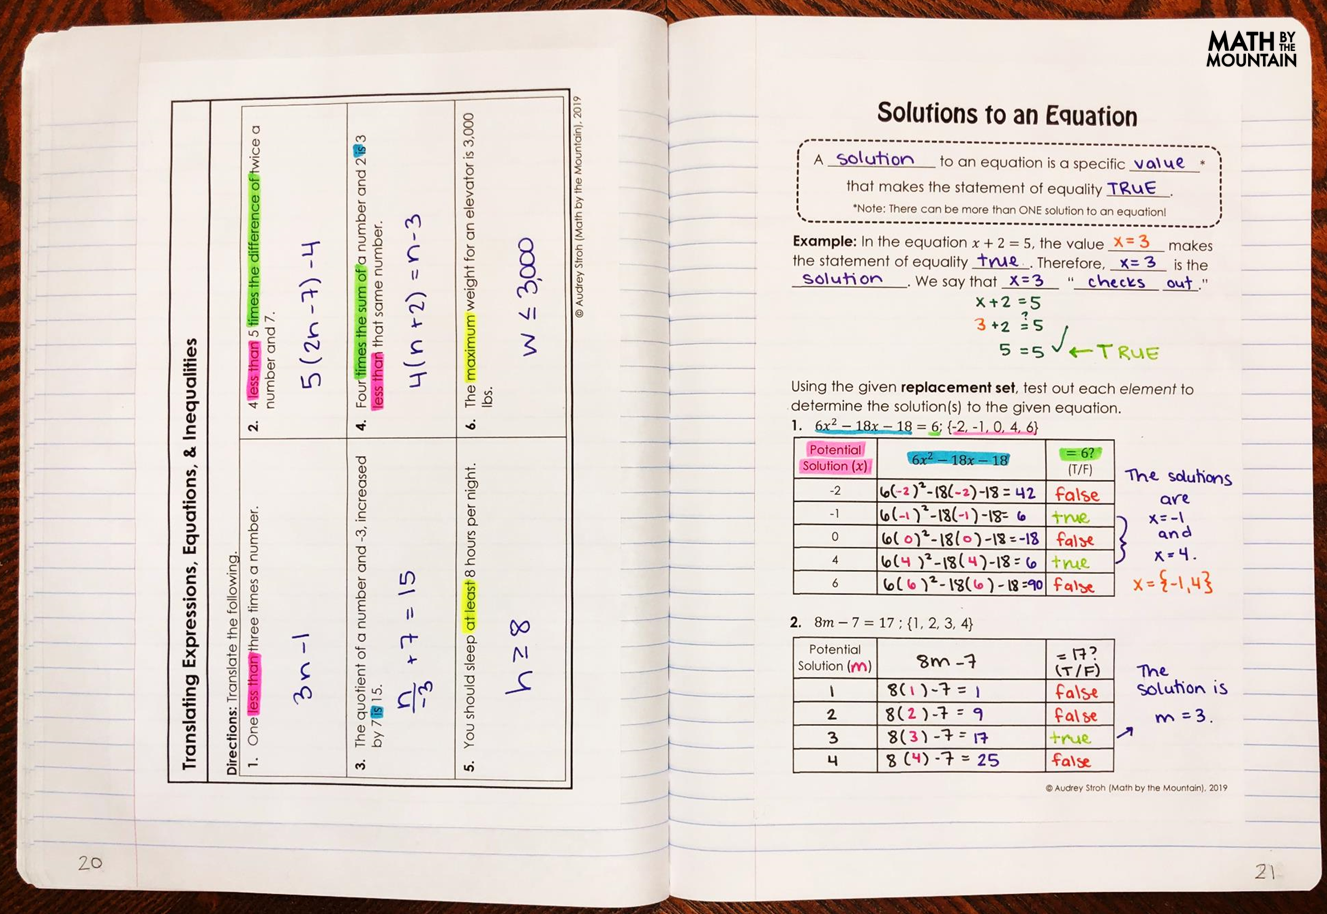 Translating Expressions, Equations, & Inequalities
Directions: Translate the following.
1. One less than three times a number.
3n - 1
2. 4 less than 5 times the difference of twice a
number and 7.
5(2n - 7) - 4
3. The quotient of a number and -3, increased
by 7 is 15.
n/-3 + 7 = 15
4. Four times the sum of a number and 2 is 3
less than that same number.
4(n + 2) = n - 3
5. You should sleep at least 8 hours per night.
h ≥ 8
6. The maximum weight for an elevator is 3,000
lbs.
w ≤ 3,000
© Audrey Stroh (Math by the Mountain), 2019
20
MATH BY THE
MOUNTAIN
Solutions to an Equation
A solution to an equation is a specific value *
that makes the statement of equality TRUE.
*Note: There can be more than ONE solution to an equation!
Example: In the equation x + 2 = 5, the value x = 3 makes
the statement of equality true. Therefore, x = 3 is the
solution. We say that x = 3 "checks out."
x + 2 = 5
3 + 2 ≟ 5
5 = 5 ✓ ← TRUE
Using the given replacement set, test out each element to
determine the solution(s) to the given equation.
1. 6x² − 18x − 18 = 6; {-2, -1, 0, 4, 6}
Potential
Solution (x)
6x² − 18x − 18
= 6?
(T/F)
-2 6(-2)² - 18(-2) - 18 = 42 false
-1 6(-1)² - 18(-1) - 18 = 6 true
0 6(0)² - 18(0) - 18 = -18 false
4 6(4)² - 18(4) - 18 = 6 true
6 6(6)² - 18(6) - 18 = 90 false
The solutions
are
x = -1
and
x = 4.
x = {-1, 4}
2. 8m − 7 = 17 ; {1, 2, 3, 4}
Potential
Solution (m)
8m - 7
= 17?
(T/F)
1 8(1) - 7 = 1 false
2 8(2) - 7 = 9 false
3 8(3) - 7 = 17 true
4 8(4) - 7 = 25 false
The
solution is
m = 3.
© Audrey Stroh (Math by the Mountain), 2019
21